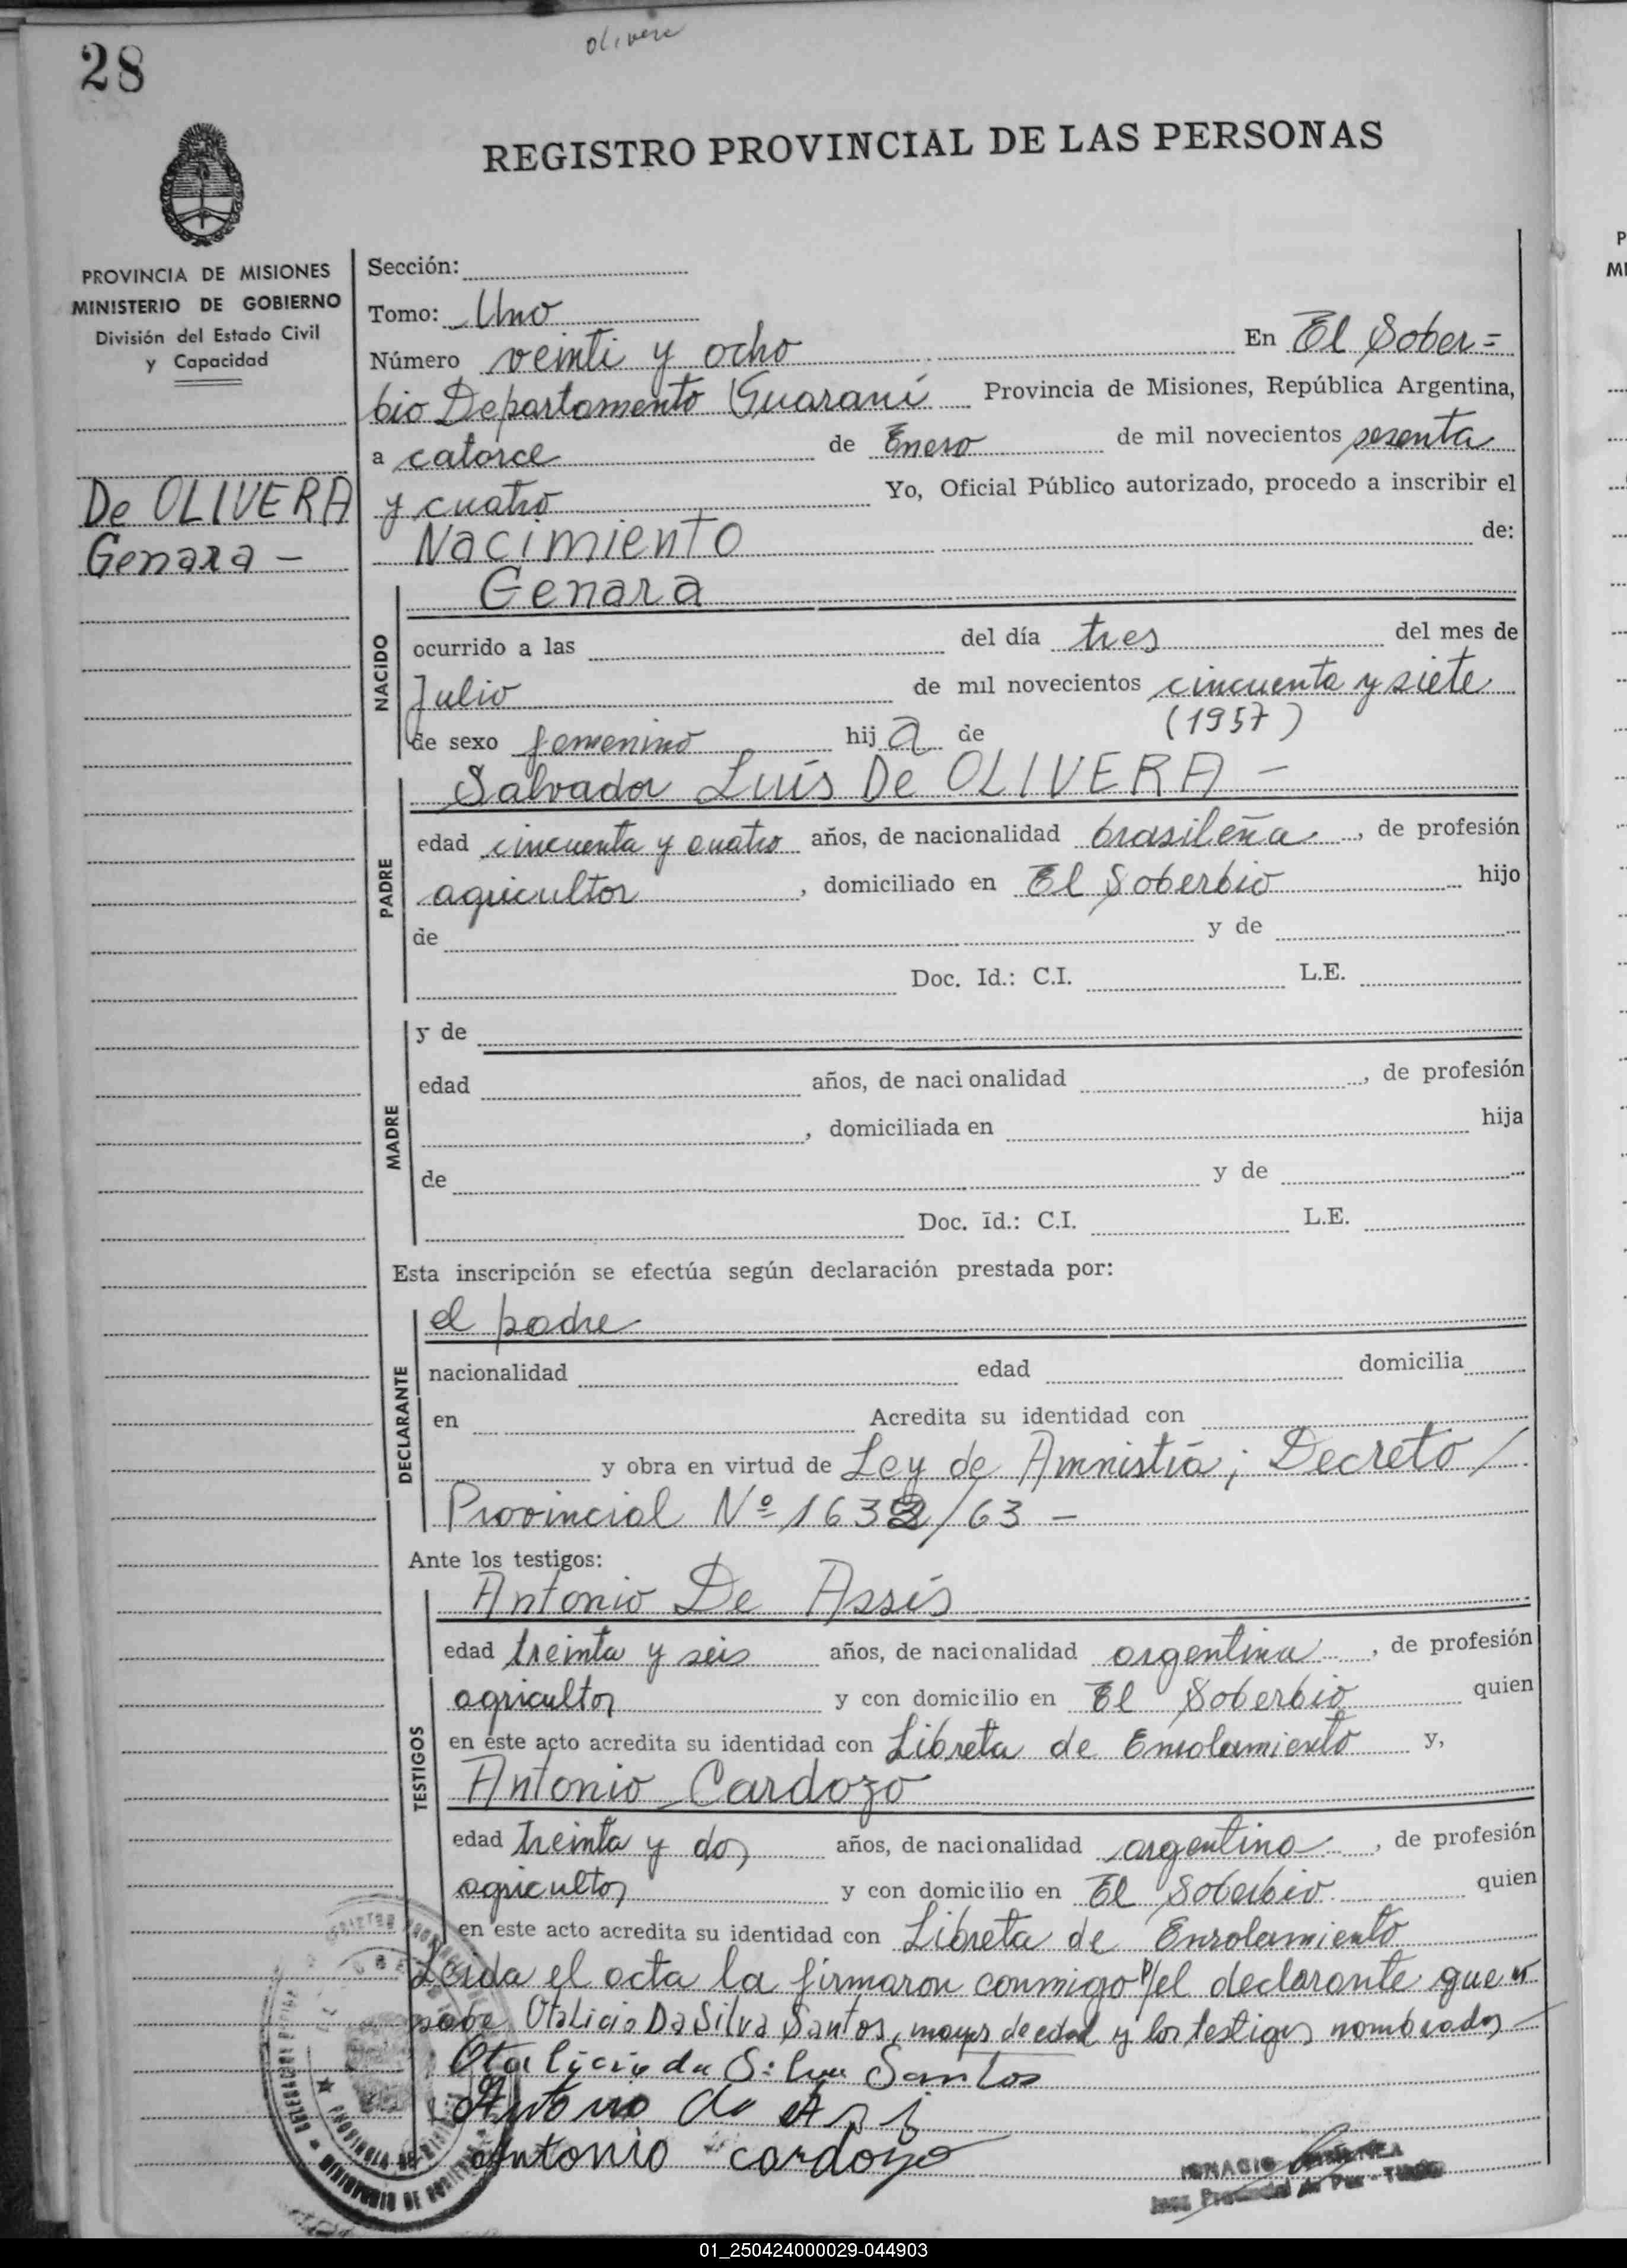 olivera
28
REGISTRO PROVINCIAL DE LAS PERSONAS
PROVINCIA DE MISIONES
MINISTERIO DE GOBIERNO
División del Estado Civil
y Capacidad
De OLIVERA
Genara -
Sección:
Tomo: Uno
Número veinti y ocho En El Sober=
bio Departamento Guaraní Provincia de Misiones, República Argentina,
a catorce de Enero de mil novecientos sesenta
y cuatro Yo, Oficial Público autorizado, procedo a inscribir el
Nacimiento de:
NACIDO
Genara
ocurrido a las del día tres del mes de
Julio de mil novecientos cincuenta y siete
(1957)
de sexo femenino hij a de
PADRE
Salvador Luís De OLIVERA -
edad cincuenta y cuatro años, de nacionalidad brasileña, de profesión
agricultor, domiciliado en El Soberbio hijo
de y de
Doc. Id.: C.I. L.E.
MADRE
y de
edad años, de nacionalidad , de profesión
, domiciliada en hija
de y de
Doc. Id.: C.I. L.E.
Esta inscripción se efectúa según declaración prestada por:
DECLARANTE
el padre
nacionalidad edad domicilia
en Acredita su identidad con
y obra en virtud de Ley de Amnistía; Decreto /
Provincial Nº 1632/63 -
Ante los testigos:
TESTIGOS
Antonio De Assís
edad treinta y seis años, de nacionalidad argentina, de profesión
agricultor y con domicilio en El Soberbio quien
en este acto acredita su identidad con Libreta de Enrolamiento y,
Antonio Cardozo
edad treinta y dos años, de nacionalidad argentino, de profesión
agricultor y con domicilio en El Soberbio quien
en este acto acredita su identidad con Libreta de Enrolamiento
Leída el acta la firmaron conmigo p/el declarante que no
sabe Otalicio Da Silva Santos, mayor de edad y los testigos nombrados
Otalicio da Silva Santos
Antonio de
Antonio cardozo
IGNACIO
Juez Provincial de Paz
PROVINCIA DE MISIONES
MINISTERIO DE GOBIERNO
01_250424000029-044903